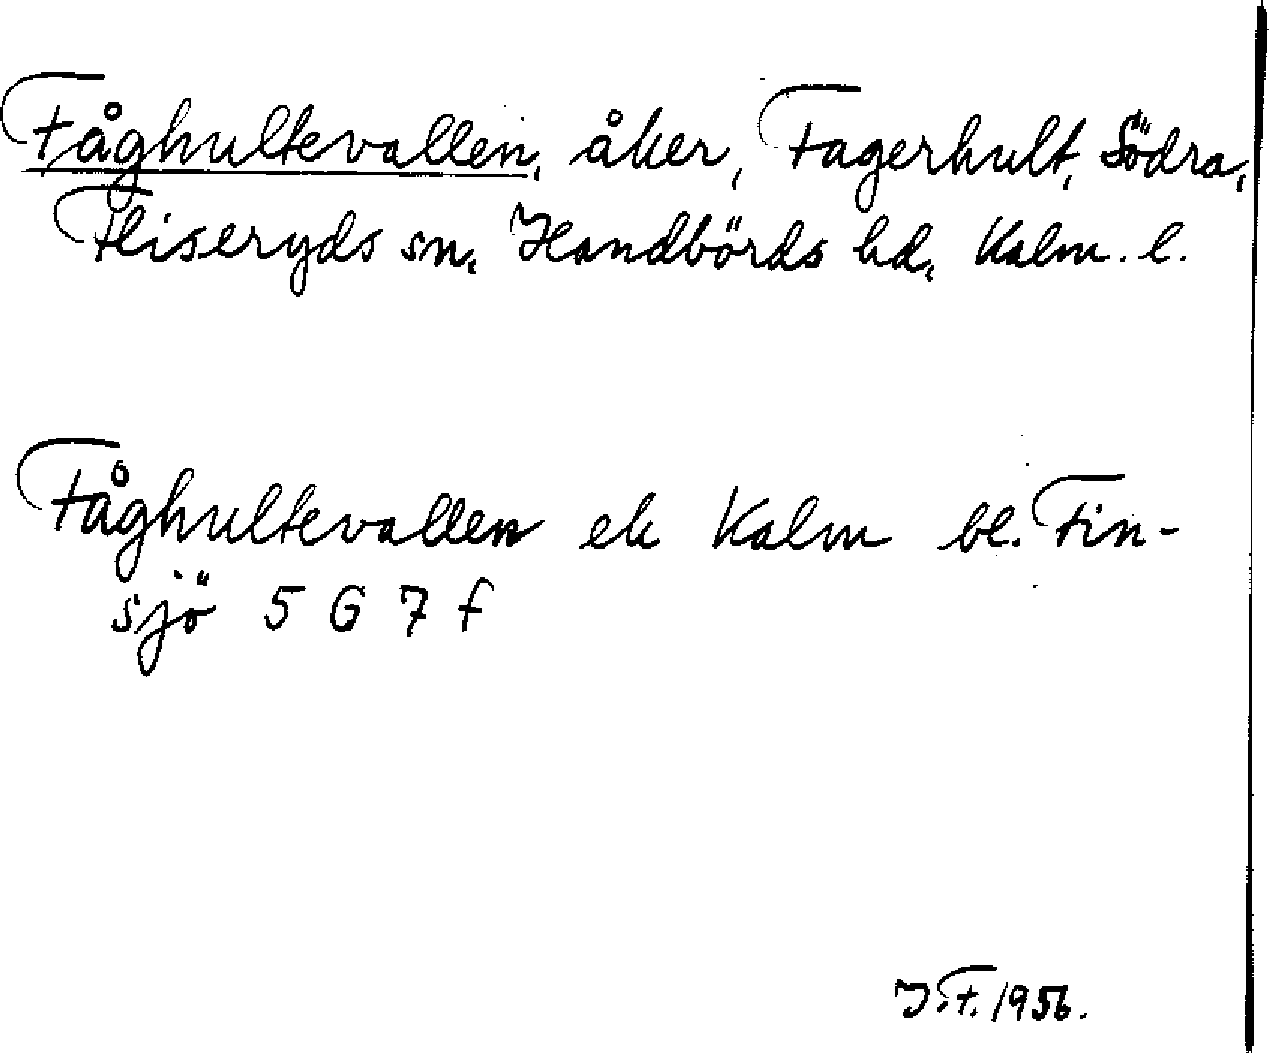 Fåghultevallen, åker, Fagerhult, Södra,
Fliseryds sn, Handbörds hd, Kalm. l.
Fåghultevallen ek Kalm bl. Fin-
sjö 5 G 7 f
J.F. 1956.